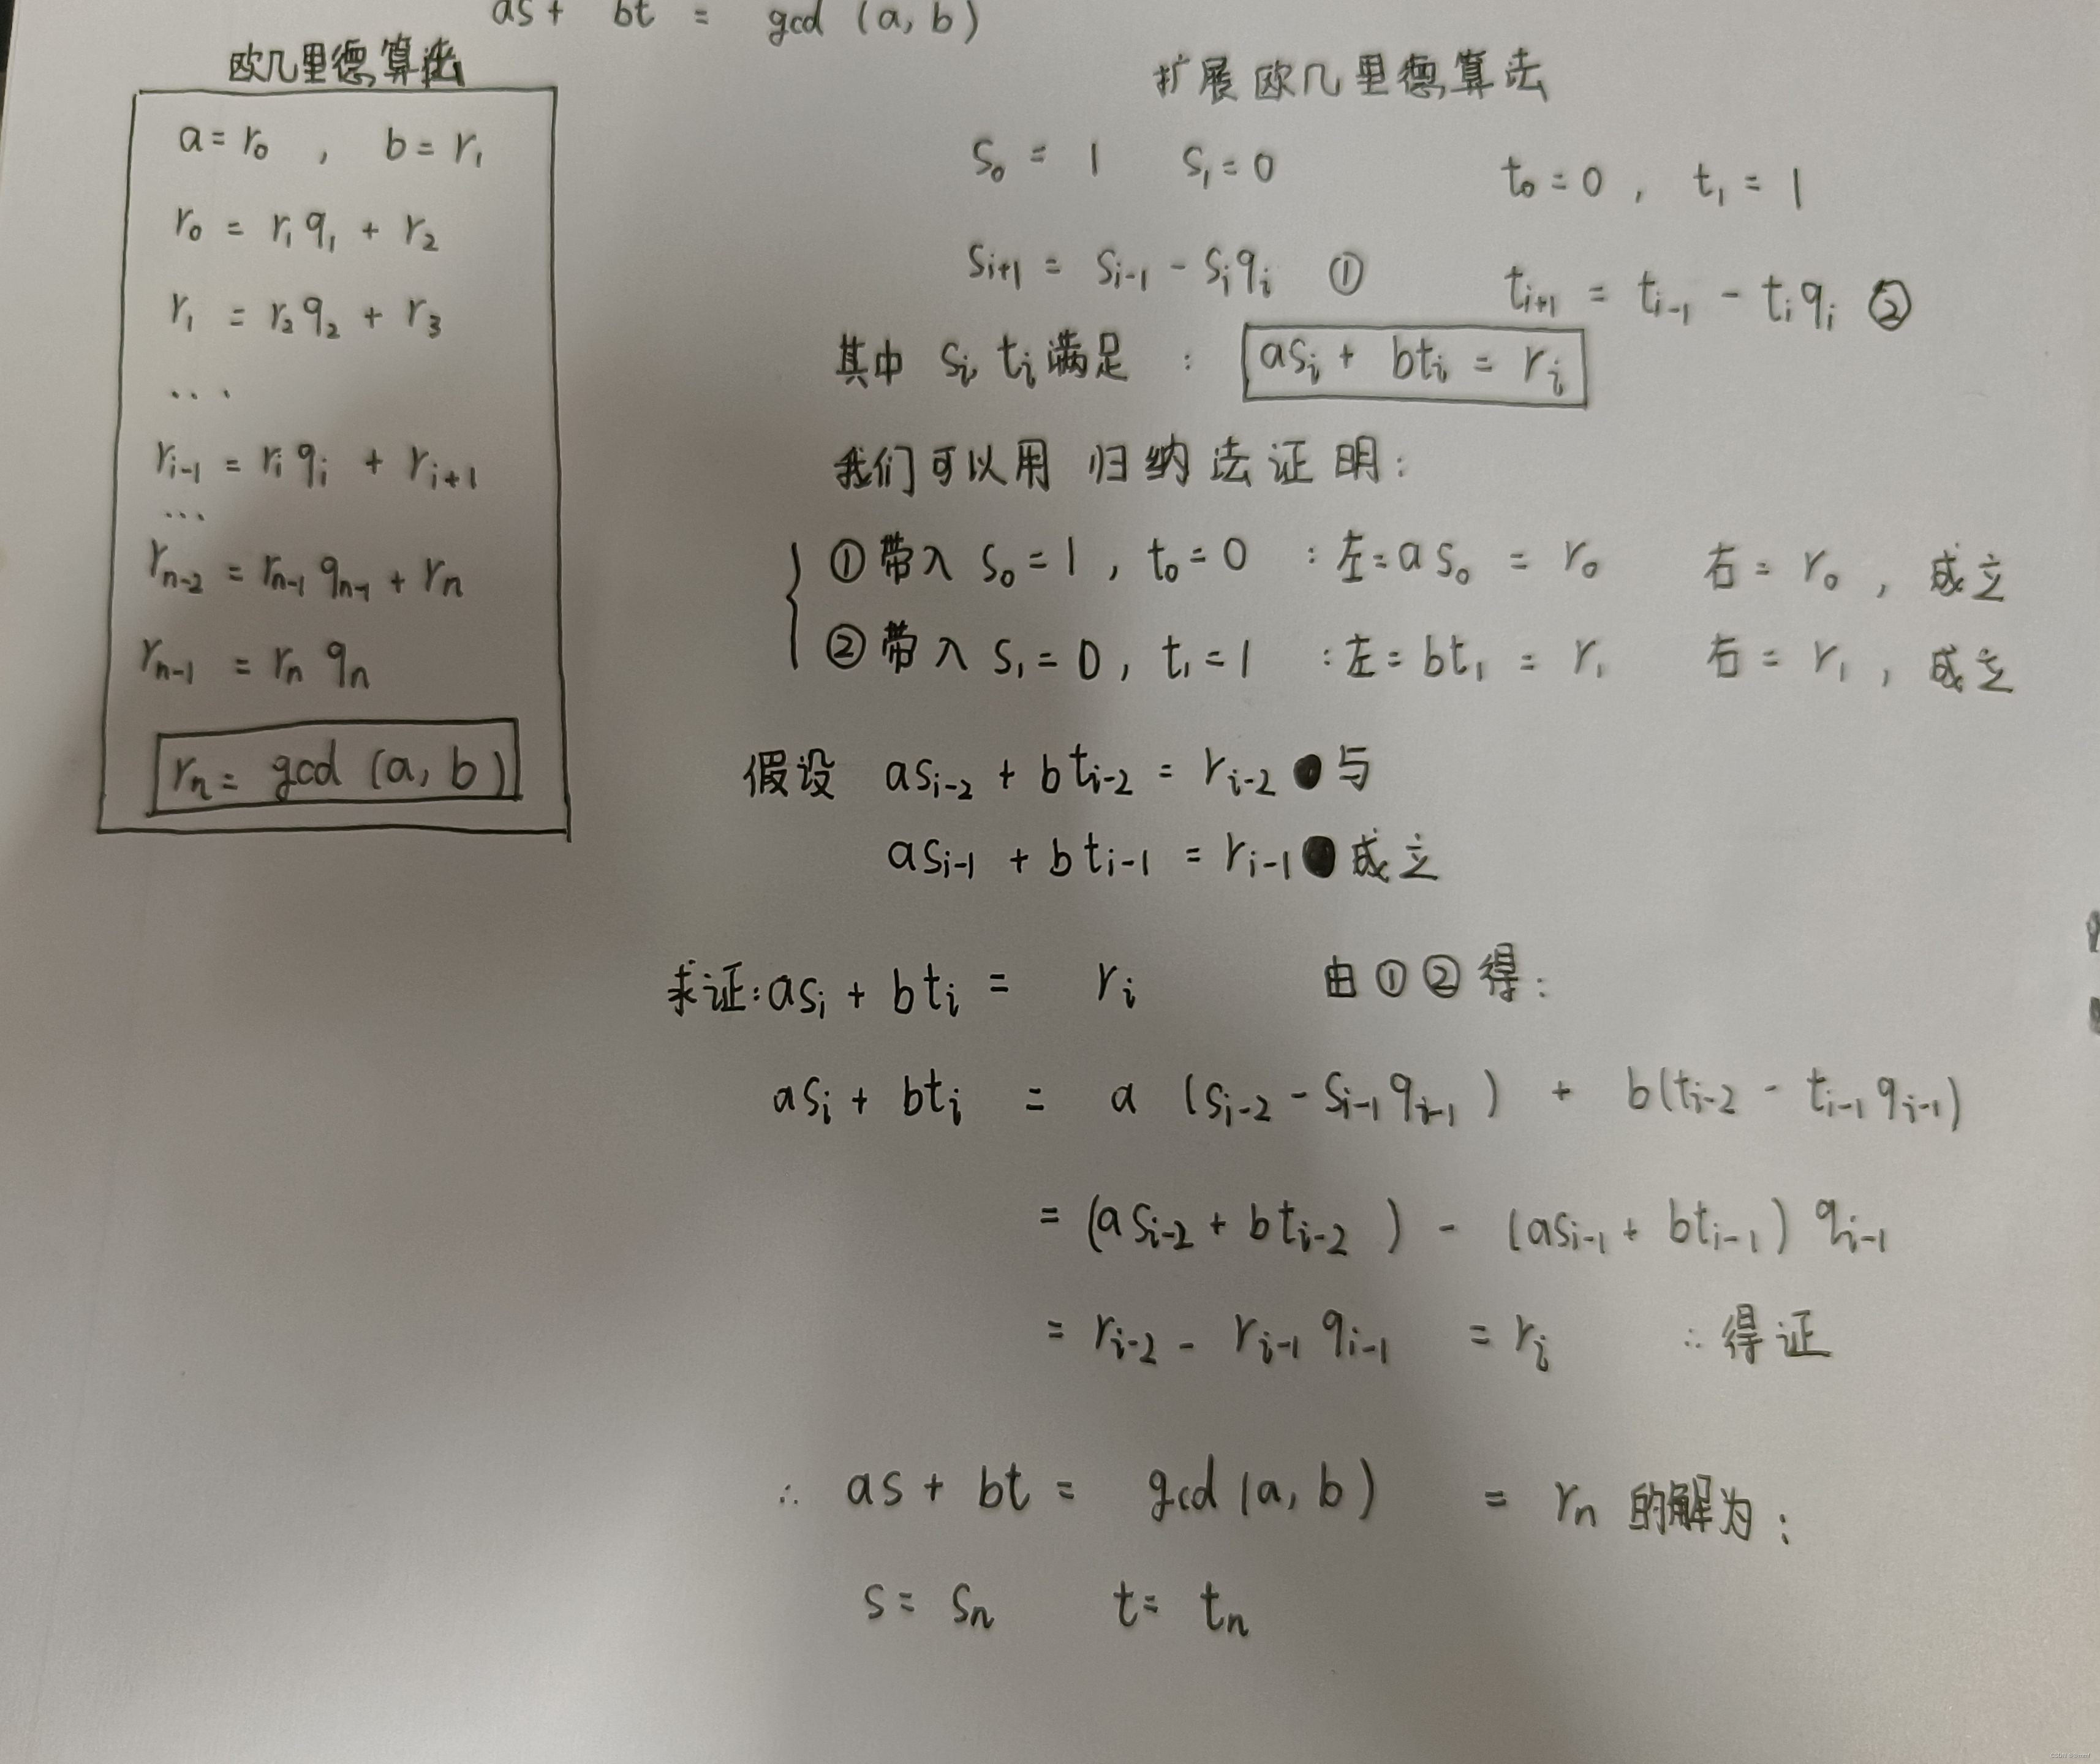 as + bt = gcd (a, b)
欧几里德算法
a = r₀ , b = r₁
r₀ = r₁q₁ + r₂
r₁ = r₂q₂ + r₃
...
rᵢ₋₁ = rᵢqᵢ + rᵢ₊₁
...
rₙ₋₂ = rₙ₋₁qₙ₋₁ + rₙ
rₙ₋₁ = rₙqₙ
rₙ = gcd (a, b)
扩展欧几里德算法
s₀ = 1 s₁ = 0 t₀ = 0 , t₁ = 1
sᵢ₊₁ = sᵢ₋₁ - sᵢqᵢ ① tᵢ₊₁ = tᵢ₋₁ - tᵢqᵢ ②
其中 sᵢ tᵢ 满足 : asᵢ + btᵢ = rᵢ
我们可以用 归纳法证明:
① 带入 s₀ = 1 , t₀ = 0 : 左 = as₀ = r₀ 右 = r₀ , 成立
② 带入 s₁ = 0 , t₁ = 1 : 左 = bt₁ = r₁ 右 = r₁ , 成立
假设 asᵢ₋₂ + btᵢ₋₂ = rᵢ₋₂ 与
asᵢ₋₁ + btᵢ₋₁ = rᵢ₋₁ 成立
求证: asᵢ + btᵢ = rᵢ 由①②得:
asᵢ + btᵢ = a (sᵢ₋₂ - sᵢ₋₁qᵢ₋₁) + b(tᵢ₋₂ - tᵢ₋₁qᵢ₋₁)
= (asᵢ₋₂ + btᵢ₋₂) - (asᵢ₋₁ + btᵢ₋₁) qᵢ₋₁
= rᵢ₋₂ - rᵢ₋₁qᵢ₋₁ = rᵢ ∴ 得证
∴ as + bt = gcd (a, b) = rₙ 的解为:
s = sₙ t = tₙ